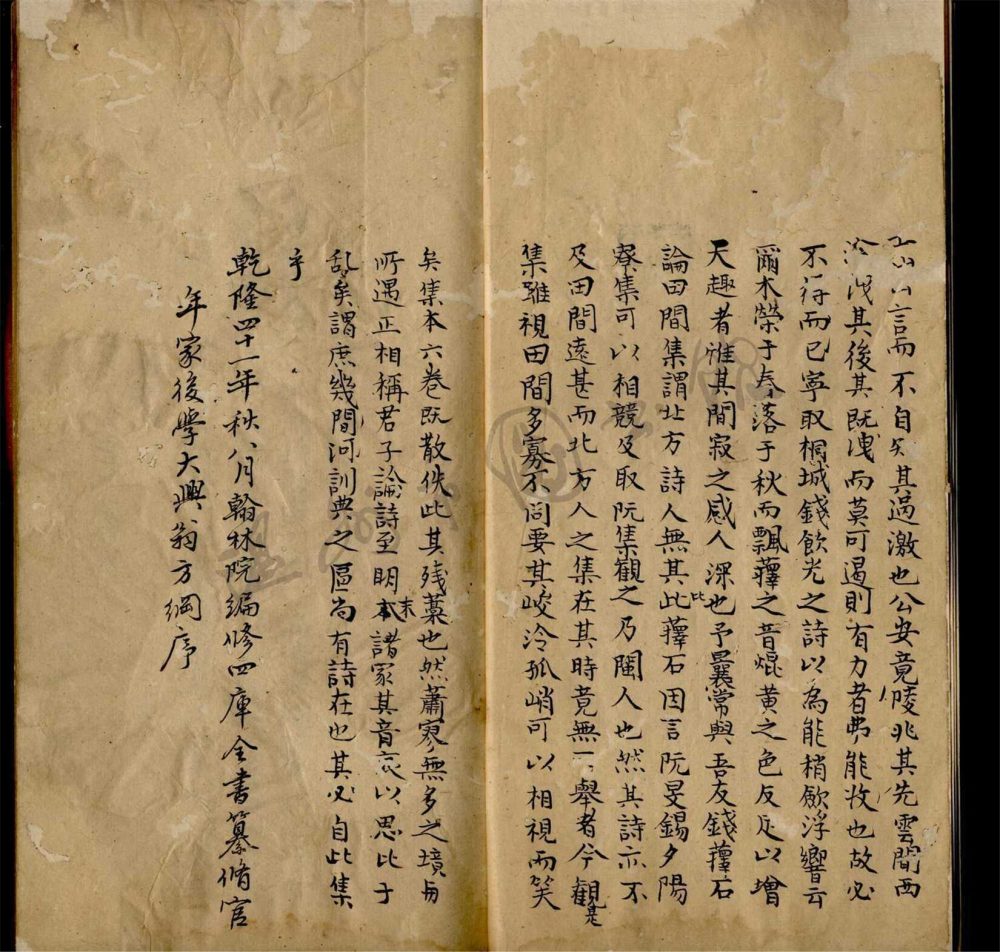 言而不自知其過激也公安竟陵兆其先雲間西
泠洩其後其既洩而莫可遏則有力者弗能收也故必
不得而已寧取桐城錢飲光之詩以為能稍歛浮響云
爾木榮于春落于秋而飄蘀之音焜黄之色反足以增
天趣者誰其間寂之感人深也予曩常與吾友錢蘀石
論田間集謂北方詩人無其比蘀石因言阮旻錫夕陽
寮集可以相競及取阮集觀之乃閩人也然其詩亦不
及田間遠甚而北方人之集在其時竟無一舉者今觀是
集雖視田間多寡不同要其峻泠孤峭可以相視而笑
矣集本六卷既散佚此其残藁也然蕭寥無多之境与
所遇正相稱君子論詩至明末諸家其音哀以思比于
乱矣謂庶幾間河訓典之區尚有詩在也其必自此集
乎
乾隆四十一年秋八月翰林院編修四庫全書纂脩官
年家後學大興翁方綱序